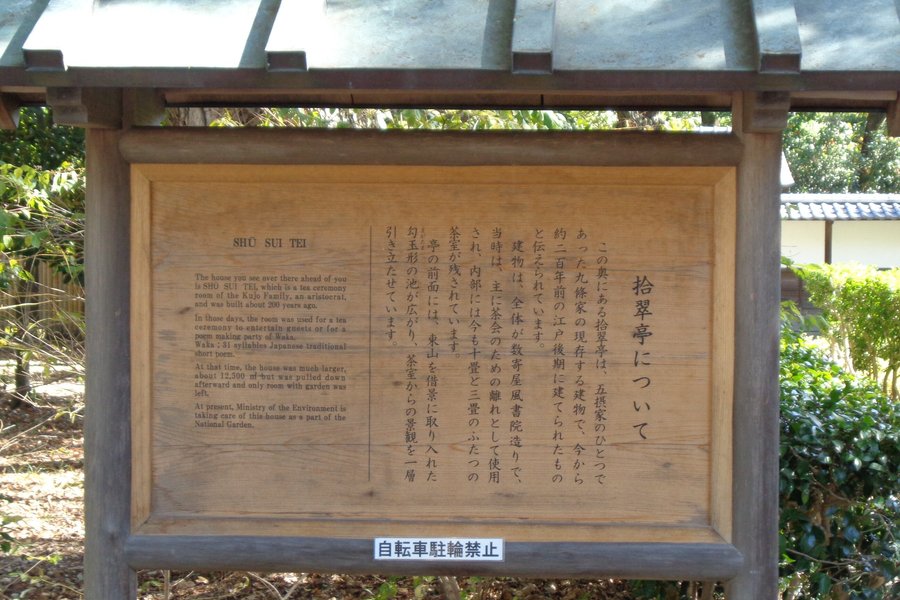 拾翠亭について
この奥にある拾翠亭は、五摂家のひとつで
あった九條家の現存する建物で、今から
約二百年前の江戸後期に建てられたもの
と伝えられています。
建物は、全体が数寄屋風書院造りで、
当時は、主に茶会のための離れとして使用
され、内部には今も十畳と三畳のふたつの
茶室が残されています。
亭の前面には、東山を借景に取り入れた
勾玉形の池が広がり、茶室からの景観を一層
引き立たせています。
SHŪ SUI TEI
The house you see over there ahead of you
is SHŪ SUI TEI, which is a tea ceremony
room of the Kujo Family, an aristocrat,
and was built about 200 years ago.
In those days, the room was used for a tea
ceremony to entertain guests or for a
poem making party of Waka.
Waka : 31 syllables Japanese traditional
short poem.
At that time, the house was much larger,
about 12,500 ㎡ but was pulled down
afterward and only room with garden was
left.
At present, Ministry of the Environment is
taking care of this house as a part of the
National Garden.
自転車駐輪禁止